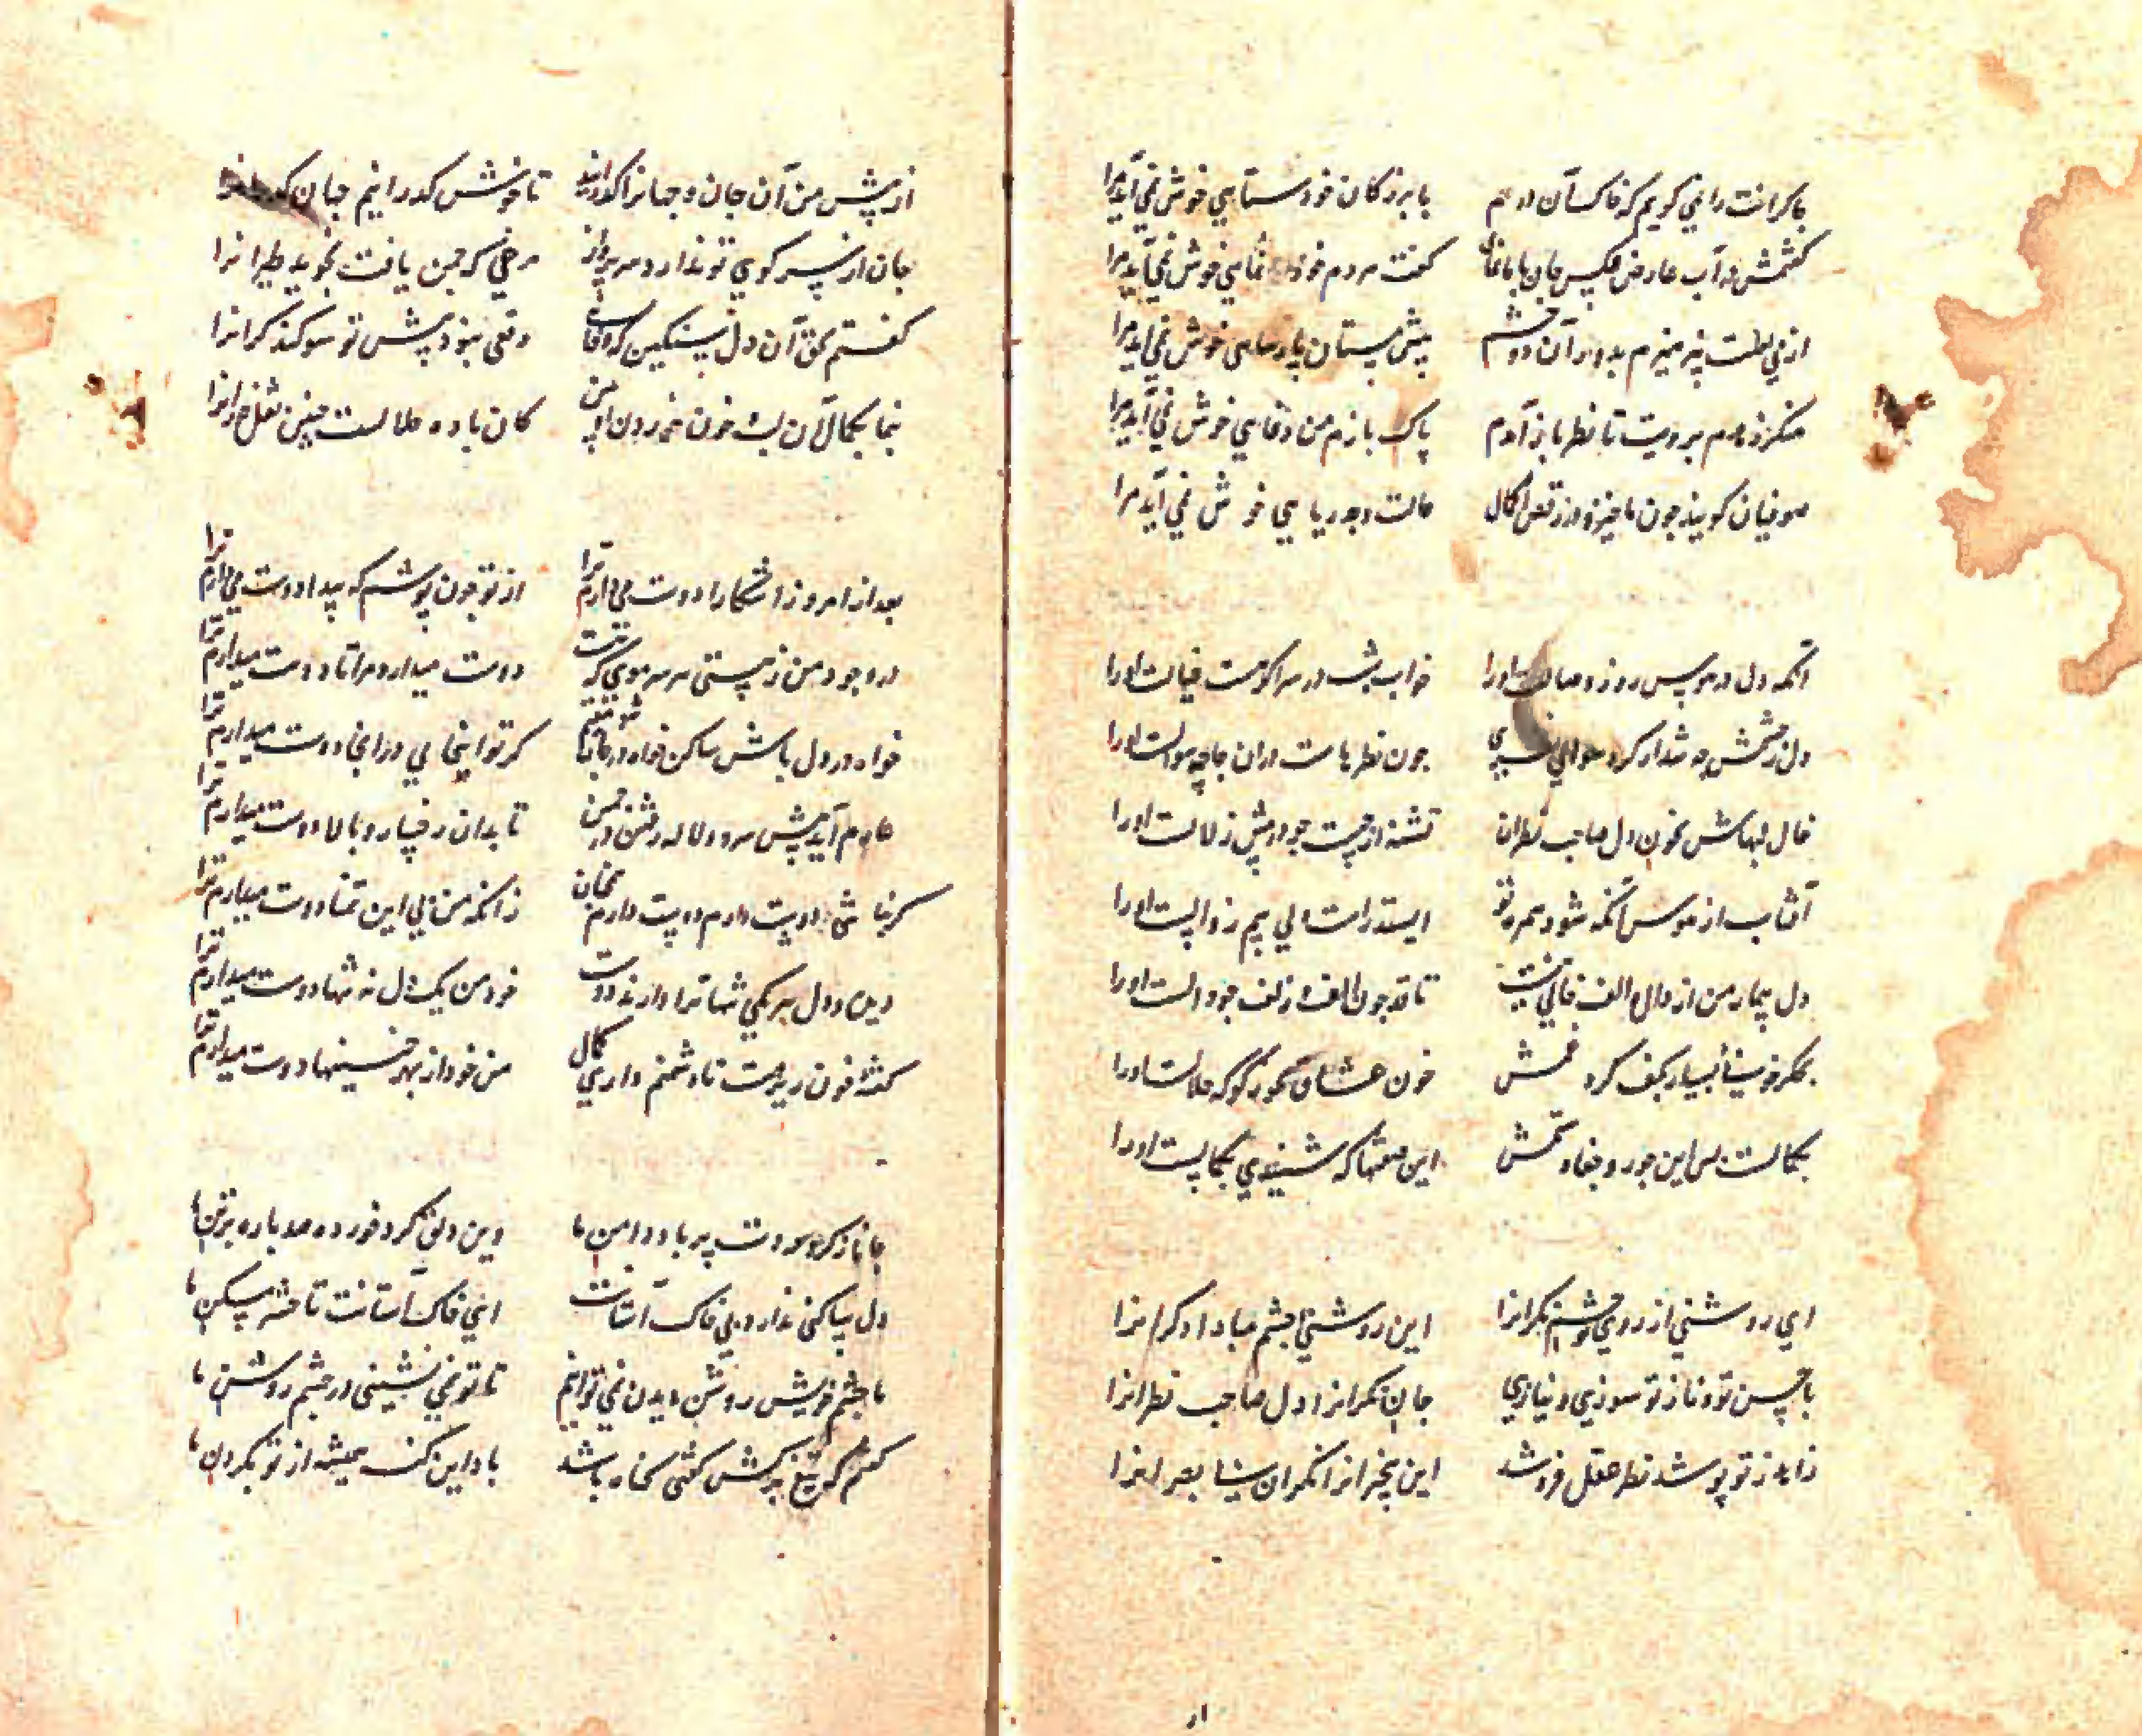 با کرانت را نمی کویم که خاک آستان درهم با بزرکان خودستایی خوش نمی آید مرا
کفتمش در آب عارض عکس جان با ما نما کفت مردم خود نمایی خوش نمی آید مرا
از می لطفت پرهیزم بدور آن دو چشم پیش مستان پارسایی خوش نمی آید مرا
منکر زهدم برویت تا نظر باز آمدم پاک بازم من دغایی خوش نمی آید مرا
صوفیان کویند چون ما خیز و در رقص ا کمال حالت وجد ریایی خوش نمی آید مرا
آنکه دل در هوس روز وصالست او را خواب شب در سر اکر هست خیالست او را
دل ز چشمش چه شد ار کرد سوالی نظری چون نظرهاست در آن جا چه سوالست او را
خال لبهاش بخون دل صاحب نظران تشنه از چیست چو در پیش زلالست او را
آفتاب از هوس آنکه شود همره تو ایستد راست ولی بیم زوالست او را
دل بیمار من از دال و الف خالی نیست تا قد چون الف و زلف چو دالست او را
مکر خونست بسیار بکف کرد غمش خون عشاق بخور کو که حلالست او را
بکمالست بس این جور و جفا و ستمش این صفتها که شنیدی بکمالست او را
ای روشنی از روی تو چشم نکرانرا این روشنی چشم مبادا دکرانرا
با حسن تو و ناز تو سوزی و نیازی جان نکرانرا دل صاحب نظرانرا
زاهد ز تو پوشد نظر عقل فروشد این بیخبرانرا نکر آن بی بصرانرا
ار
از پیش من آن جان و جهانرا کذرانید تا خوش کذرانیم جهان کذرانرا
جان از سر کوی تو ندارد سر پرواز مرغی که چمن یافت نجوید طیرانرا
کفتم بحق آن دل سنکین که وفا وقعی نبود پیش تو سوکند کرانرا
بنما بکمال آن لب خون خوردن او بین کان باده حلالست چنین نقل خورانرا
بعد از امروز آشکارا دوست می دارم ترا از تو چون پوشم که پیدا دوست می دارم ترا
در وجود من ز هستی هر سر مویی که هست دوست میدارد مرا تا دوست میدارم ترا
خواه در دل باش ساکن خواه در جان شو مقیم کر تو اینجایی ور آنجا دوست میدارم ترا
عارم آید پیش سرو و لاله رفتن در چمن تا بدان رخسار و بالا دوست میدارم ترا
کر نباشی دوست دارم دوست دارم همچنان زانکه من بی این تمنا دوست میدارم ترا
دین و دل هر یکی تنها ترا دارند دوست خود من یک دل نه تنها دوست میدارم ترا
کفته خون ریزمت تا دشمنم داری کمال من خود از بهر چنینها دوست میدارم ترا
جاناز کرد سودت پر باد دامن ما وین دلق کرد خورده صد باره بر تن ما
دل ساکنی ندارد بی خاک آستانت اینی خاک آستانت تا حشر مسکن ما
ما چشم خویش روشن دیدن نمی توانیم تا تو نمی نشینی در چشم روشن ما
کفتم که تیغ برکش کفتی کناه باشد باد این کنه همیشه از تو بکردن ما